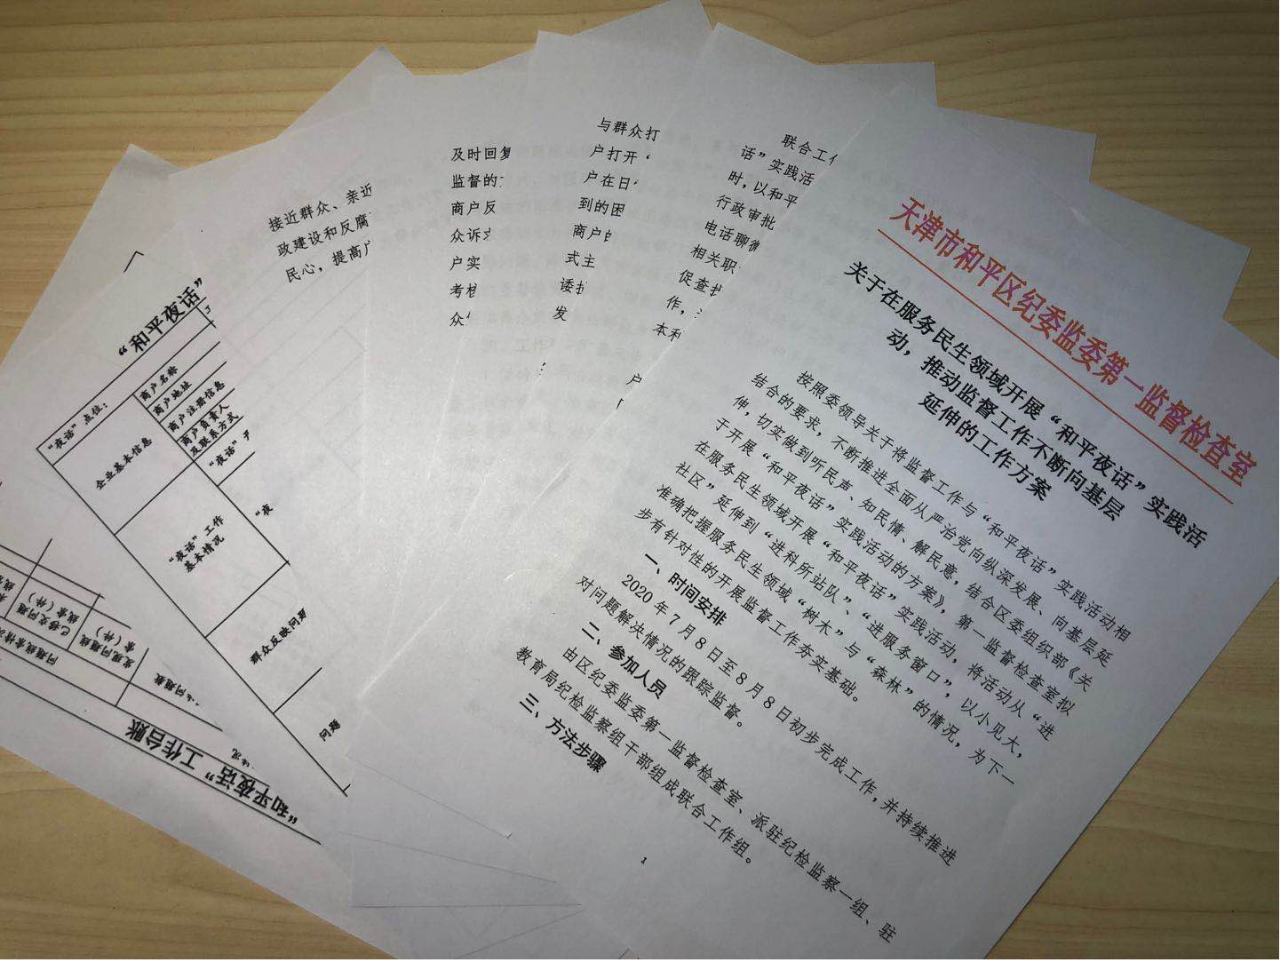 天津市和平区纪委监委第一监督检查室
关于在服务民生领域开展“和平夜话”实践活
动，推动监督工作不断向基层
延伸的工作方案
按照委领导关于将监督工作与“和平夜话”实践活动相
结合的要求，不断推进全面从严治党向纵深发展、向基层延
伸，切实做到听民声、知民情、解民意，结合区委组织部《关
于开展“和平夜话”实践活动的方案》，第一监督检查室拟
在服务民生领域开展“和平夜话”实践活动，将活动从“进
社区”延伸到“进科所站队”、“进服务窗口”，以小见大，
准确把握服务民生领域“树木”与“森林”的情况，为下一
步有针对性的开展监督工作夯实基础。
一、时间安排
2020年7月8日至8月8日初步完成工作，并持续推进
对问题解决情况的跟踪监督。
二、参加人员
由区纪委监委第一监督检查室、派驻纪检监察一组、驻
教育局纪检监察组干部组成联合工作组。
三、方法步骤
1
联合工
话”实践活
时，以和平
行政审批
电话聊微
相关职
促查
作，
本科
户
与群众打
户打开“
户在日
到的困
商户的
式主
诿扯
发
及时回复
监督的
商户反
众诉求
户实
考核
众
接近群众、亲近
政建设和反腐
民心，提高
“和平夜话”
“夜话”点位：
企业基本信息
商户名称
商户地址
商户注册信息
商户负责人
及联系方式
“夜话”
“夜话”工作
基本情况
“夜
群众反映问题
问题
“和平夜话”工作台账
问题线索情
已移交问题线
索（件）
发现问题线
索（件）